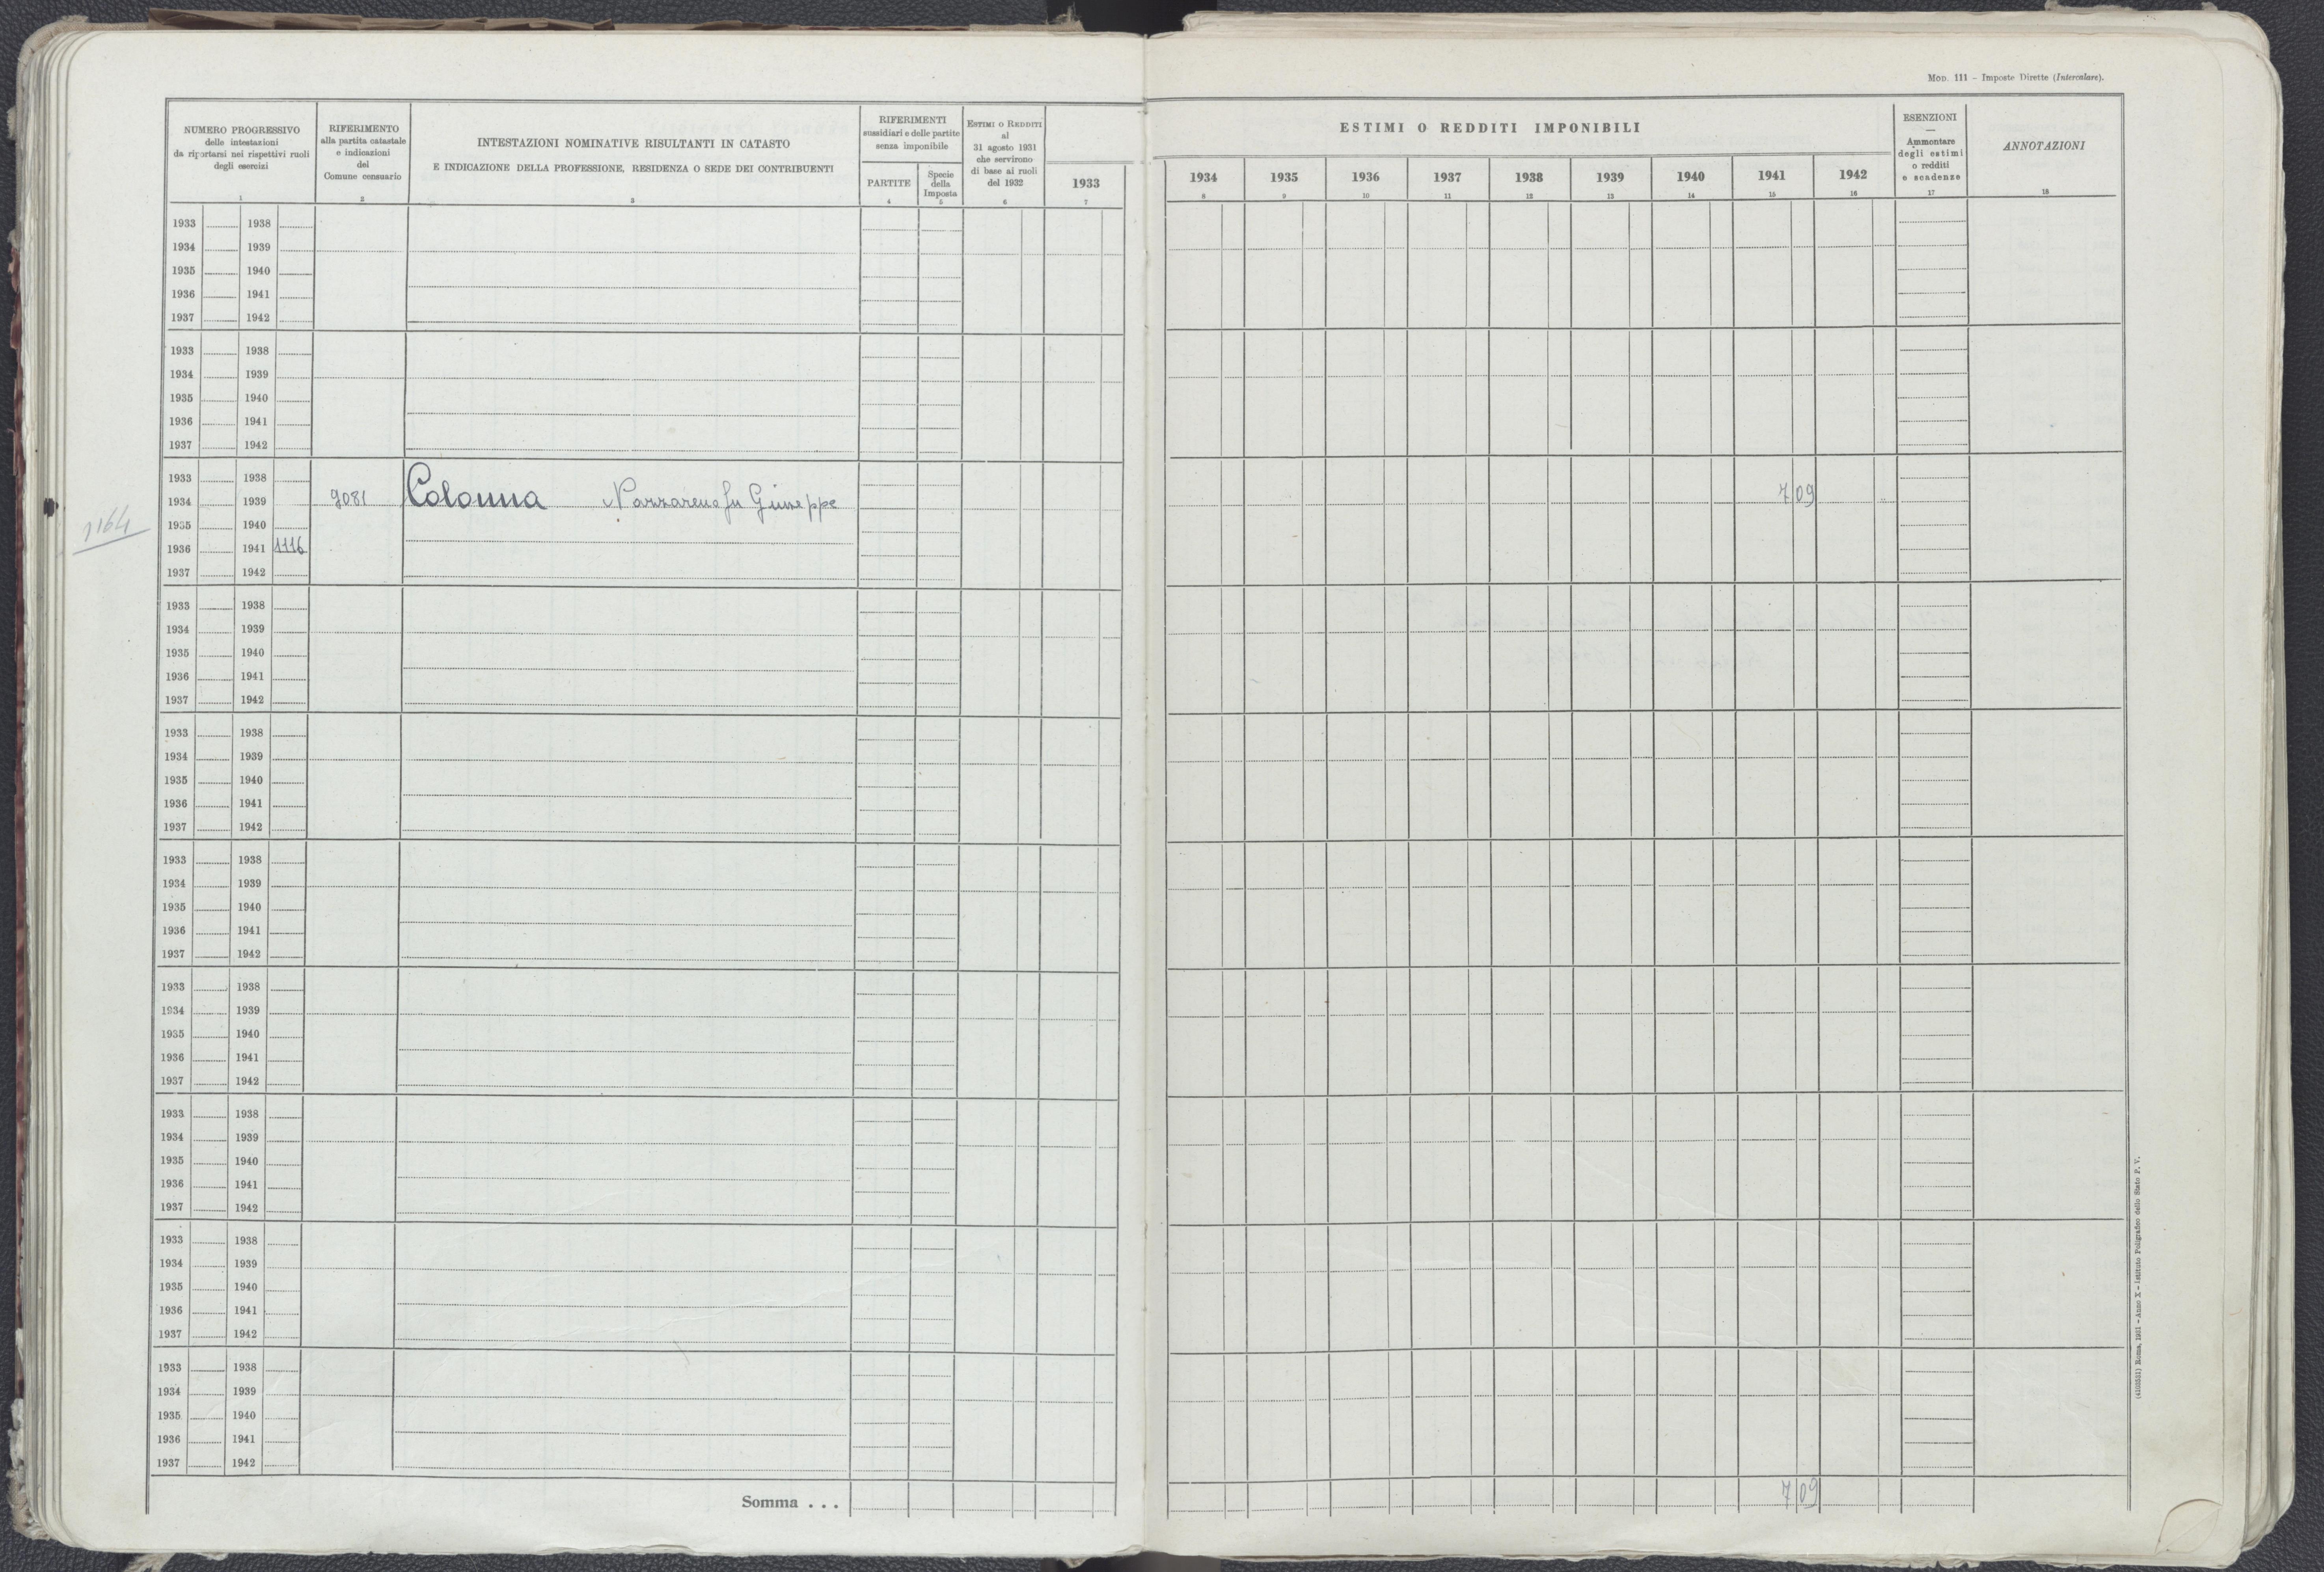 MOD. 111 - Imposte Dirette (Intercalare).
NUMERO PROGRESSIVO
delle intestazioni
da riportarsi nei rispettivi ruoli
degli esercizi
1
RIFERIMENTO
alla partita catastale
e indicazioni
del
Comune censuario
2
INTESTAZIONI NOMINATIVE RISULTANTI IN CATASTO
E INDICAZIONE DELLA PROFESSIONE, RESIDENZA O SEDE DEI CONTRIBUENTI
3
RIFERIMENTI
sussidiari e delle partite
senza imponibile
PARTITE
4
Specie
della
Imposta
5
ESTIMI O REDDITI
al
31 agosto 1931
che servirono
di base ai ruoli
del 1932
6
1933
7
ESTIMI O REDDITI IMPONIBILI
1934 1935 1936 1937 1938 1939 1940 1941 1942
8 9 10 11 12 13 14 15 16
ESENZIONI
—
Ammontare
degli estimi
o redditi
e scadenze
17
ANNOTAZIONI
18
1933 1938
1934 1939
1935 1940
1936 1941
1937 1942
1933 1938
1934 1939
1935 1940
1936 1941
1937 1942
1933 1938
1934 1939 9081 Colonna Nazzareno fu Giuseppe 7 09
1164
1935 1940
1936 1941 1116
1937 1942
1933 1938
1934 1939
1935 1940
1936 1941
1937 1942
1933 1938
1934 1939
1935 1940
1936 1941
1937 1942
1933 1938
1934 1939
1935 1940
1936 1941
1937 1942
1933 1938
1934 1939
1935 1940
1936 1941
1937 1942
1933 1938
1934 1939
1935 1940
1936 1941
1937 1942
1933 1938
1934 1939
1935 1940
1936 1941
1937 1942
1933 1938
1934 1939
1935 1940
1936 1941
1937 1942
Somma . . . 7 09
(4103531) Roma, 1931 - Anno X - Istituto Poligrafico dello Stato P. V.